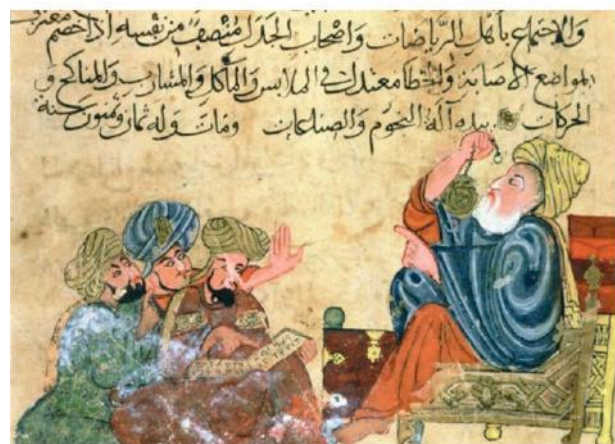 والاجتماع بأهل الرياضات واصحاب الجدل منصف من نفسه اذا خصم معترف
بمواضع الاصابة والخطا معتدل في الملابس والمآكل والمشارب والمناكح و
الحركات بيده آلة النجوم ومات وله سنة